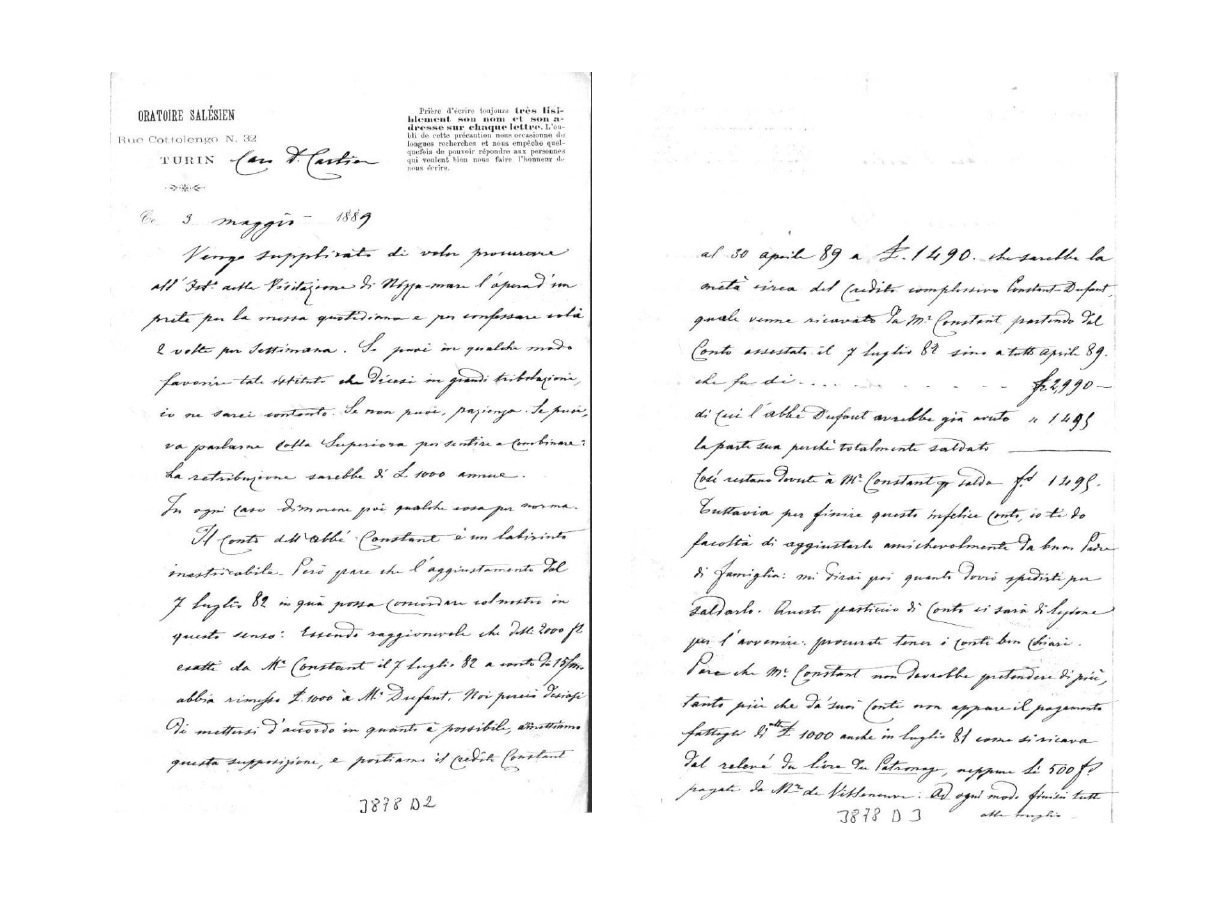 ORATOIRE SALÉSIEN
Rue Cottolengo N. 32
TURIN
Prière d'écrire toujours très lisi-
blement son nom et son a-
dresse sur chaque lettre. L'ou-
bli de cette précaution nous occasionne de
longues recherches et nous empêche quel-
quefois de pouvoir répondre aux personnes
qui veulent bien nous faire l'honneur de
nous écrire.
Caro D. Cartier
Ce 3 maggio 1889
Vengo supplicato di voler procurare
all' Ist.o della Visitazione di Nizza-mare l'opera d'un
prete per la messa quotidiana e per confessare colà
2 volte per settimana. Se puoi in qualche modo
favorire tale istituto che dicesi in grandi tribolazioni,
io ne sarei contento. Se non puoi, pazienza. Se puoi,
va parlarne colla Superiora per sentire e combinare:
La retribuzione sarebbe di £ 1000 annue.
In ogni caso dimmene poi qualche cosa per norma.
Il Conto dell'abbé Constant è un labirinto
inestricabile. Però pare che l'aggiustamento dal
7 luglio 82 in qua possa concordare col nostro in
questo senso: Essendo raggionevole che delli 2000 f
esatti da Mr Constant il 7 luglio 82 a conto dei
abbia rimesso £ 1000 à Mr Dufaut. Noi perciò
di mettersi d'accordo in quanto è possibile, ammettiamo
questa supposizione, e portiamo il credito Constant
3878 D2
al 30 aprile 89 a £. 1490. che sarebbe la
metà circa del Credito complessivo Constant-Dufaut,
quale venne ricavato da Mr Constant partendo dal
Conto assestato il 7 luglio 82 sino a tutto aprile 89.
che fu di . . . . . . . . . . . f 2,990 —
di cui l'abbé Dufaut avrebbe già avuto " 1495
la parte sua perchè totalmente saldato
Così restano dovuti à Mr Constant per saldo f 1495.
Tuttavia per finire questo infelice conto, io ti do
facoltà di aggiustarlo amichevolmente da buon Padre
di famiglia: mi dirai poi quanto dovrò spedirti per
saldarlo. Questo pasticcio di Conto ci sarà di lezione
per l'avvenire: procurate tener i conti ben chiari.
Pare che Mr Constant non dovrebbe pretendere di più,
tanto più che da' suoi Conti non appare il pagamento
fattogli di altre £ 1000 anche in luglio 81 come si ricava
dal relevé du livre du Patronage, neppure li 500 f
pagati da Mr de Villeneuve. Ad ogni modo finisci tutto
alla meglio
3878 D3